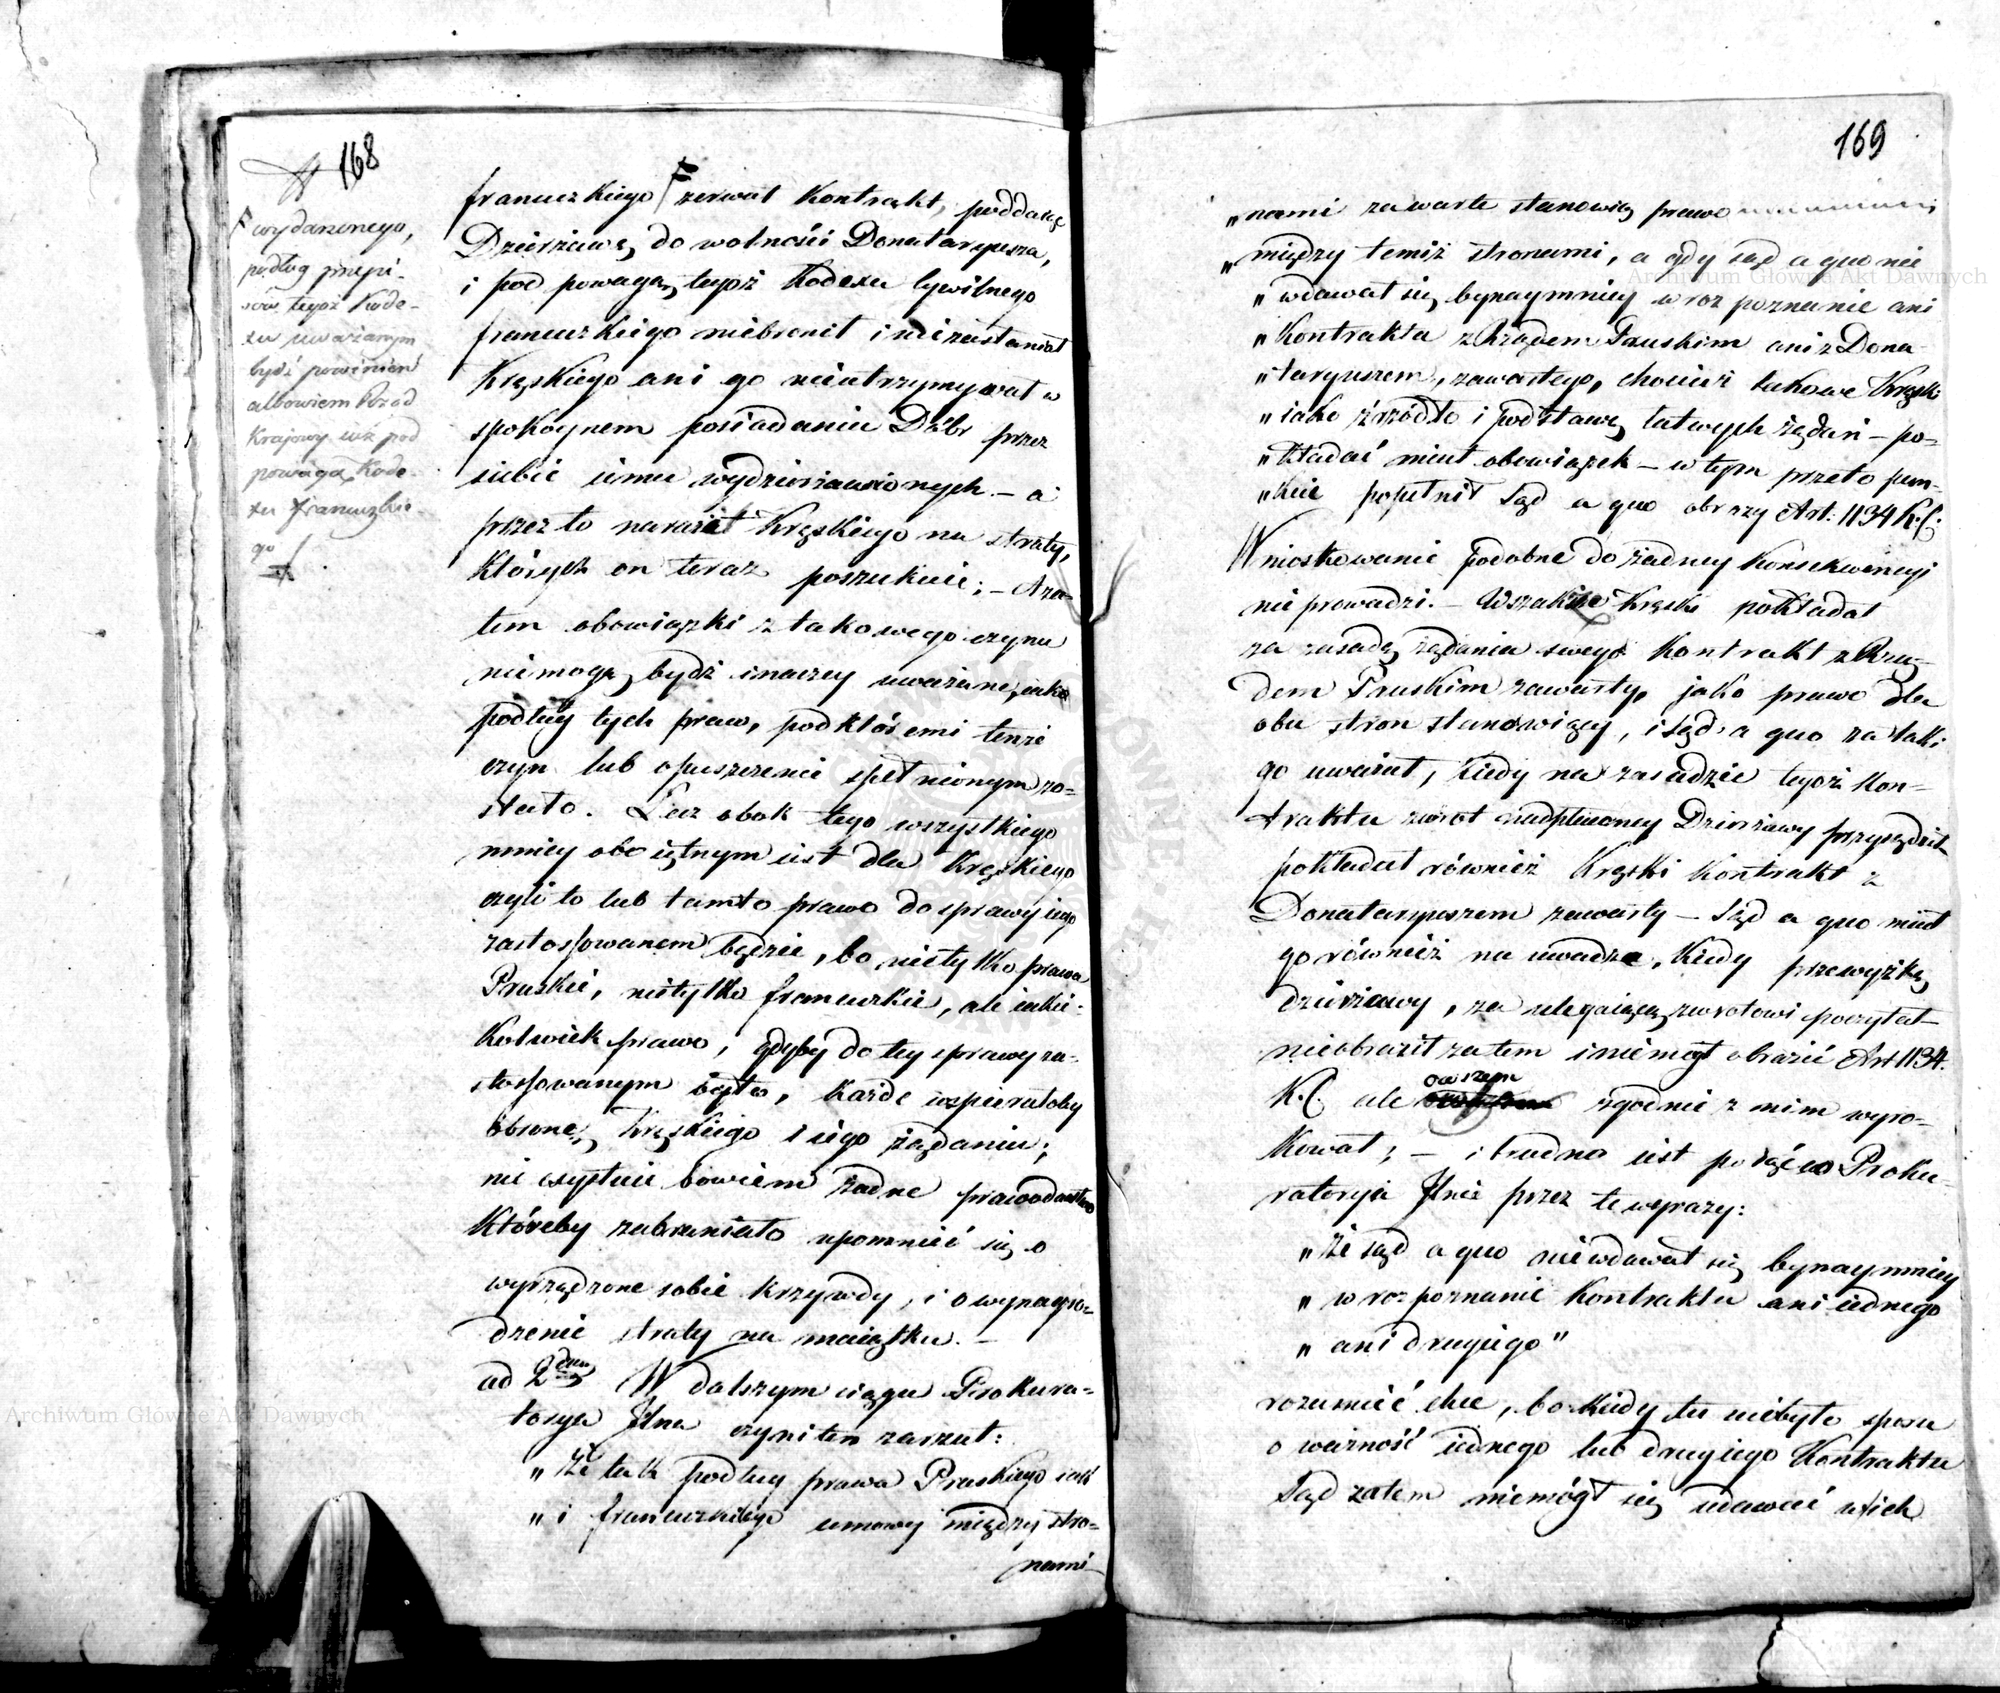 168
F wydarzonego,
podług przepi-
sów tegoż Kode-
xu uważanym
bydź powinien
albowiem Rząd
Krajowy iuż pod
powagą Kode-
xu francuzkie-
go
francuzkiego F zerwał Kontrakt, poddaiąc
Dzierżawę do wolności Donataryusza,
i pod powagą tegoż Kodexu Cywilnego
francuzkiego niebronił i niezastaniał
Kręskiego ani go nieutrzymywał w
spokoynem posiadaniu Dóbr przez
siebie iemu wydzierżawionych – a
przez to naraził Kręskiego na straty,
których on teraz poszukuie; – A za-
tem obowiązki z takowego czynu
niemogą bydź inaczey uważane, iako
podług tych praw, pod któremi tenże
czyn lub opuszczenie spełnionym zo-
stało. Lecz obok tego wszystkiego
mniey oboiętnym iest dla Kręskiego
czyli to lub tamto prawo do sprawy iego
zastosowanem będzie, bo nietylko prawa
Pruskie, nietylko francuzkie, ale iakie-
kolwiek prawo, gdyby do tey sprawy za-
stosowanym było, każde wspierałoby
obronę Kręskiego i iego żądania;
nie exystuie bowiem żadne prawodawstwo
któreby zabraniało upomnieć się o
wyrządzone sobie krzywdy, i o wynagro-
dzenie straty na maiątku. –
ad 2dum W dalszym ciągu Prokura-
torya Jlna czyni ten zarzut:
„ że tak podług prawa Pruskiego iak
„ i francuzkiego umowy między stro-
nami
169
„ nami zawarte stanowią prawo
„ między temiż stronami, a gdy sąd a quo nie
„ wdawał się bynaymniey w rozpoznanie ani
„ Kontraktu z Rządem Pruskim ani z Dona-
„ taryuszem, zawartego, chociaż takowe Kręski
„ iako źrzódło i podstawę tatwych żądań – po-
„ kładać miał obowiązek – w tym przeto pun-
„ kcie popełnił Sąd a quo obrazy Art: 1134 K.C:
Wnioskowanie podobne do żadney Konsekwencyi
nie prowadzi. – Wszakże Kręski pokładał
za zasadę żądania swego Kontrakt z Rzą-
dem Pruskim zawarty, jako prawo dla
obu stron stanowiący, i Sąd a quo za taki
go uważał, kiedy na zasadzie tegoż Kon-
traktu zwrot nadpłaconey Dzierżawy przysądził
pokładał również Kręski Kontrakt z
Donataryuszem zawarty – Sąd a quo miał
go również na uwadze, kiedy przewyżkę
dzierżawy, za ulegaiącą zwrotowi poczytał –
nieobraził zatem i niemógł obrazić Art 1134.
K.C. ale owszem zgodnie z nim wyro-
kował; – i trudno iest poiąć co Proku-
ratorya Jlna przez te wyrazy:
„ że sąd a quo niewdawał się bynaymniey
„ w rozpoznanie Kontraktu ani iednego
„ ani drugiego”
rozumieć chce, bo kiedy tu niebyło sporu
o ważność iednego lub drugiego Kontraktu
Sąd zatem niemógł się wdawać w ich
Archiwum Główne Akt Dawnych
Archiwum Główne Akt Dawnych